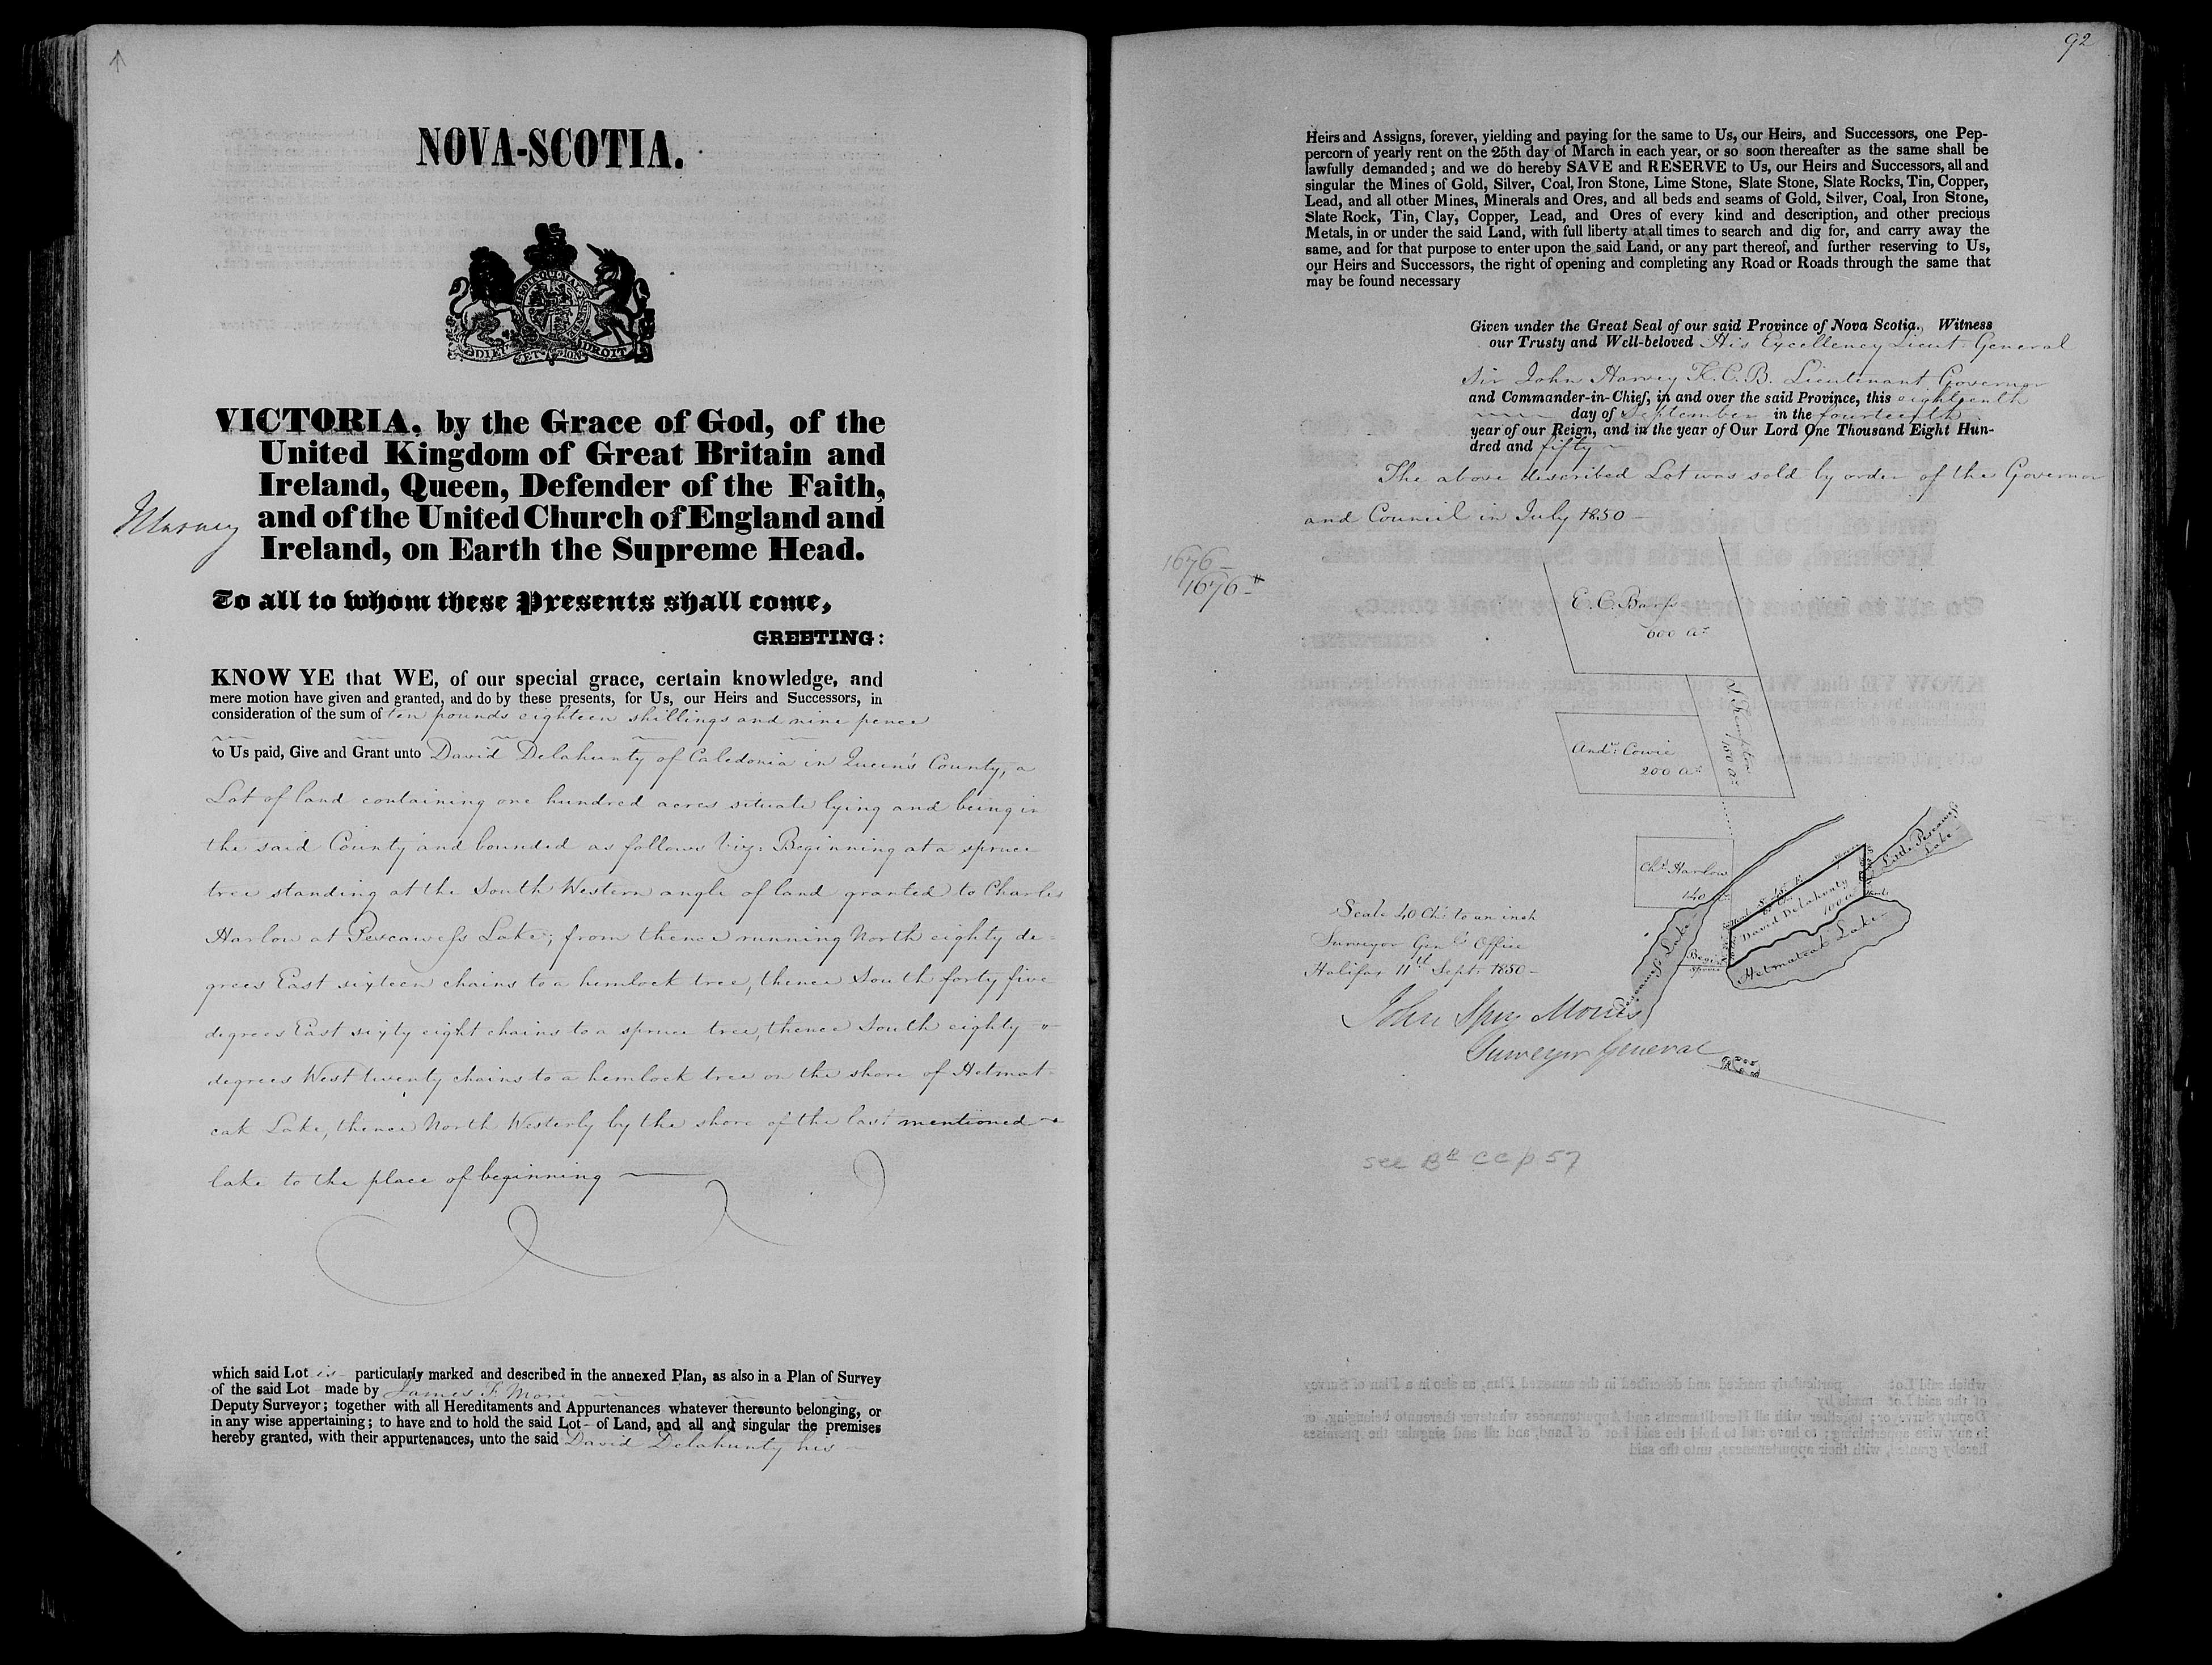 NOVA-SCOTIA.
DIEU ET MON DROIT
VICTORIA, by the Grace of God, of the
United Kingdom of Great Britain and
Ireland, Queen, Defender of the Faith,
and of the United Church of England and
Ireland, on Earth the Supreme Head.
J Harvey
To all to whom these Presents shall come,
GREETING:
KNOW YE that WE, of our special grace, certain knowledge, and
mere motion have given and granted, and do by these presents, for Us, our Heirs and Successors, in
consideration of the sum of ten pounds eighteen shillings and nine pence
to Us paid, Give and Grant unto David Delahunty of Caledonia in Queen's County, a
Lot of land containing one hundred acres situate lying and being in
the said County and bounded as follows viz: Beginning at a spruce
tree standing at the South Western angle of land granted to Charles
Harlow at Pescawess Lake; from thence running North eighty de=
grees East sixteen chains to a hemlock tree, thence South forty five
degrees East sixty eight chains to a spruce tree, thence South eighty "
degrees West twenty chains to a hemlock tree on the shore of Hetmot=
cak Lake, thence North Westerly by the shore of the last mentioned
lake to the place of beginning
which said Lot is particularly marked and described in the annexed Plan, as also in a Plan of Survey
of the said Lot made by James F. More
Deputy Surveyor; together with all Hereditaments and Appurtenances whatever thereunto belonging, or
in any wise appertaining; to have and to hold the said Lot - of Land, and all and singular the premises
hereby granted, with their appurtenances, unto the said David Delahunty his
92
Heirs and Assigns, forever, yielding and paying for the same to Us, our Heirs, and Successors, one Pep-
percorn of yearly rent on the 25th day of March in each year, or so soon thereafter as the same shall be
lawfully demanded; and we do hereby SAVE and RESERVE to Us, our Heirs and Successors, all and
singular the Mines of Gold, Silver, Coal, Iron Stone, Lime Stone, Slate Stone, Slate Rocks, Tin, Copper,
Lead, and all other Mines, Minerals and Ores, and all beds and seams of Gold, Silver, Coal, Iron Stone,
Slate Rock, Tin, Clay, Copper, Lead, and Ores of every kind and description, and other precious
Metals, in or under the said Land, with full liberty at all times to search and dig for, and carry away the
same, and for that purpose to enter upon the said Land, or any part thereof, and further reserving to Us,
our Heirs and Successors, the right of opening and completing any Road or Roads through the same that
may be found necessary
Given under the Great Seal of our said Province of Nova Scotia. Witness
our Trusty and Well-beloved His Excellency Lieut. General
Sir John Harvey K.C.B. Lieutenant Governor
and Commander-in-Chief, in and over the said Province, this eighteenth
day of September in the fourteenth
year of our Reign, and in the year of Our Lord One Thousand Eight Hun-
dred and fifty
The above described Lot was sold by order of the Governor
and Council in July 1850
1676
1676
E. C. Barss
600 As.
100 As.
Andw. Cowie
200 As.
Chs. Harlow
140
David Delahunty
100 a
Little Pescawess
Lake
Hetmatcak Lake
Pescawess Lake
Scale 40 Chs. to an inch
Surveyor Genl's Office
Halifax 11th Sept. 1850
John Spry Morris
Surveyor General
see Bk CC p 57